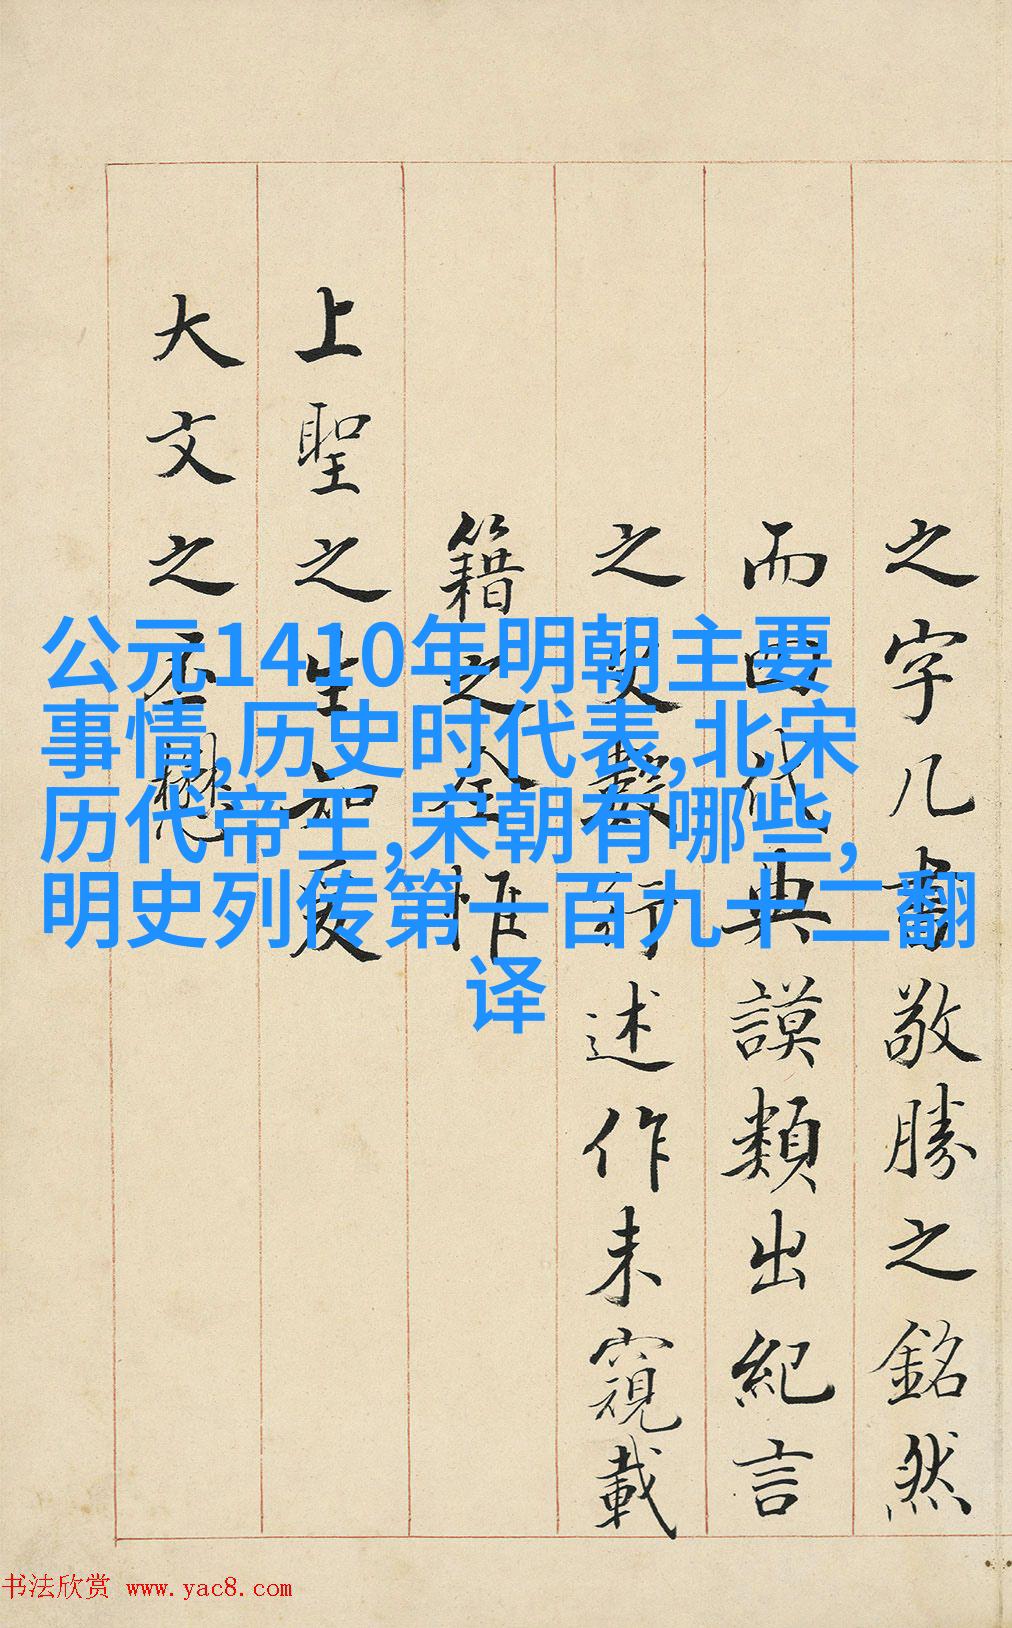 公元1410年明朝主要
事情,历史时代表,北宋
历代帝王,宋朝有哪些,
明史列传第一百九十二翻
译
之字几書敬勝之銘然
而四代典謨類出紀言
之史行述作未窺載
籍之全惟
上聖之生知爰
大文之丕懋
书法欣赏 www.yac8.com